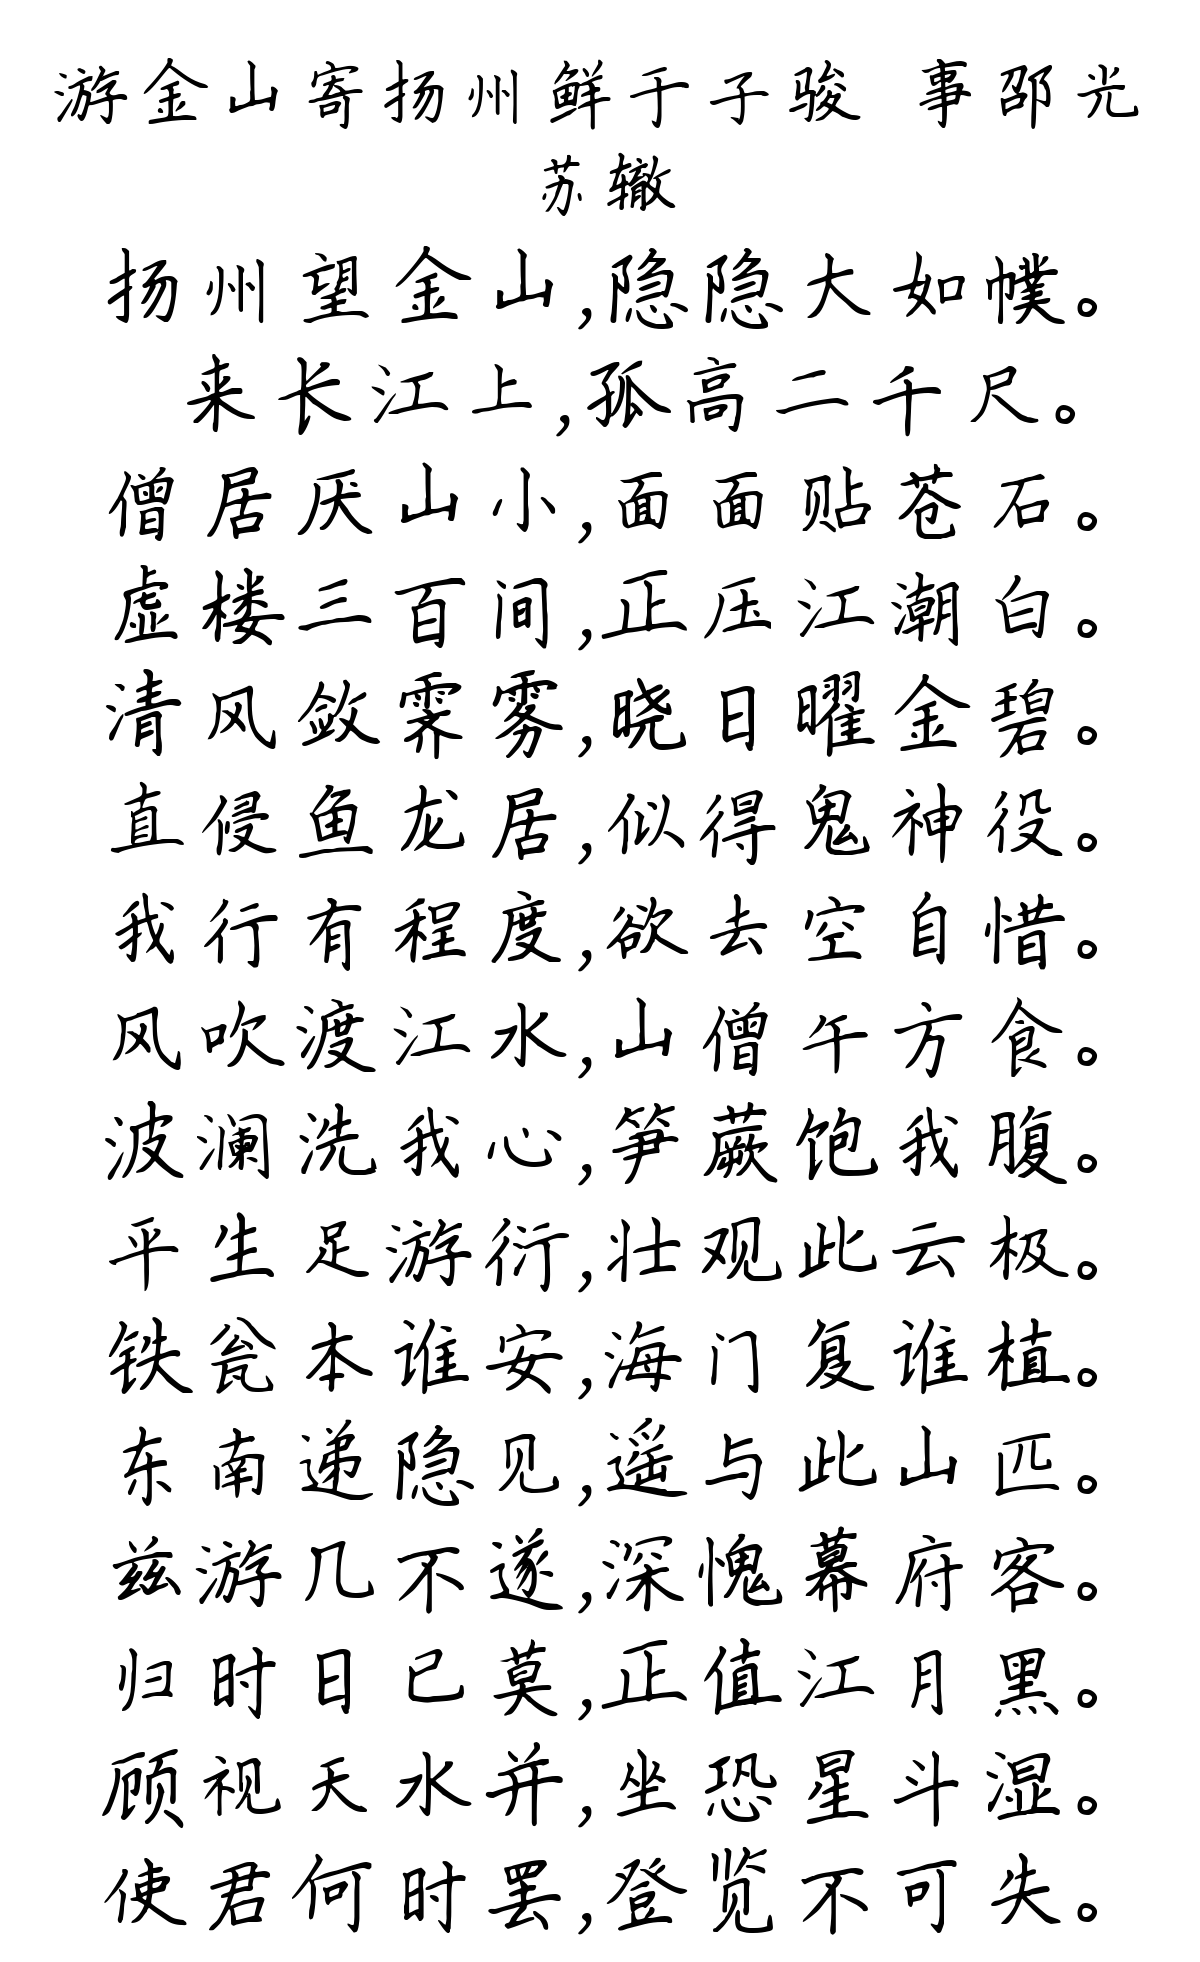 游金山寄扬州鲜于子骏 事邵光
苏辙
扬州望金山,隐隐大如幞。
来长江上,孤高二千尺。
僧居厌山小,面面贴苍石。
虚楼三百间,正压江潮白。
清风敛霁雾,晓日曜金碧。
直侵鱼龙居,似得鬼神役。
我行有程度,欲去空自惜。
风吹渡江水,山僧午方食。
波澜洗我心,笋蕨饱我腹。
平生足游衍,壮观此云极。
铁瓮本谁安,海门复谁植。
东南递隐见,遥与此山匹。
兹游几不遂,深愧幕府客。
归时日已莫,正值江月黑。
顾视天水并,坐恐星斗湿。
使君何时罢,登览不可失。